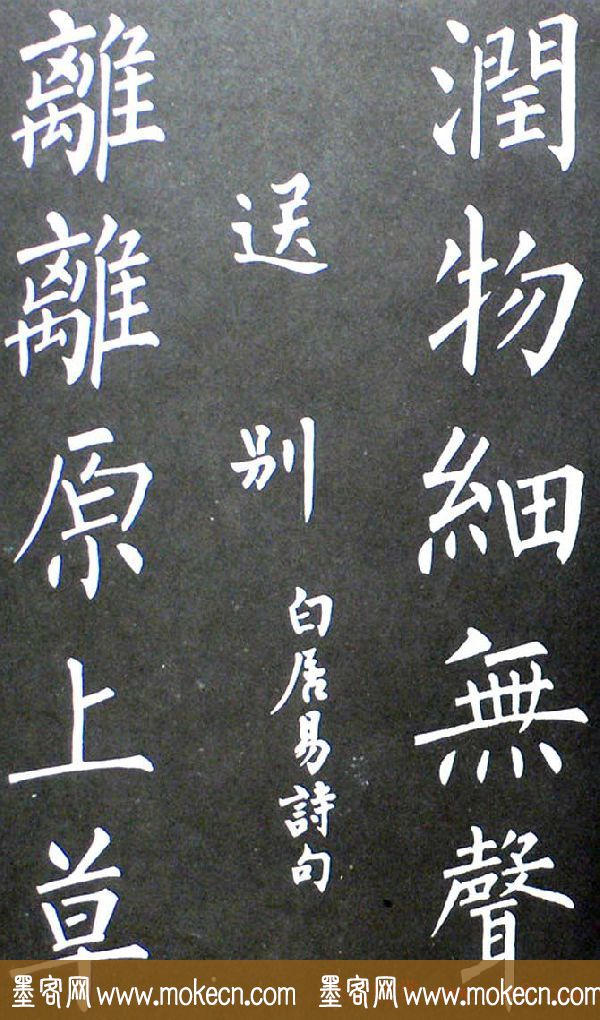 潤物細無聲
送别
白居易詩句
離離原上草
墨客网 www.mokecn.com 墨客网 www.mokecn.com